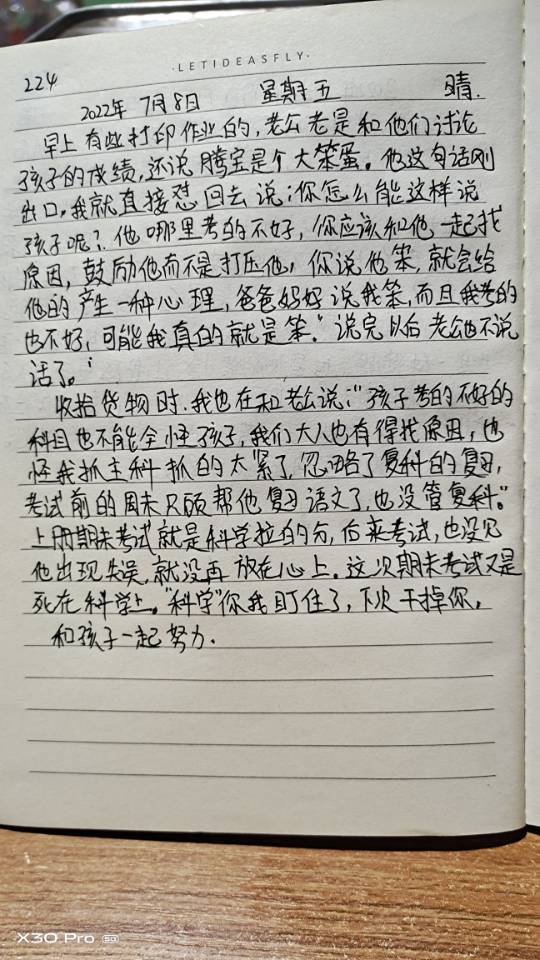 ·LETIDEASFLY·
224
2022年 7月8日 星期五 晴.
早上有些打印作业的,老公老是和他们讨论
孩子的成绩,还说腾宝是个大笨蛋。他这句话刚
出口,我就直接怼回去说:你怎么能这样说
孩子呢?他哪里考的不好,你应该和他一起找
原因,鼓励他而不是打压他,你说他笨,就会给
他的产生一种心理,爸爸妈妈说我笨,而且我考的
也不好,可能我真的就是笨."说完以后老公也不说
话了。
收拾货物时,我也在和老公说:"孩子考的不好的
科目也不能全怪孩子,我们大人也有得找原因,也
怪我抓主科抓的太紧了,忽略了复科的复习,
考试前的周末只顾帮他复习语文了,也没管复科。"
上册期末考试就是科学拉的分,后来考试,也没见
他出现失误,就没再放在心上.这次期末考试又是
死在科学上。"科学"你我盯住了,下次干掉你,
和孩子一起努力.
X30 Pro 5G